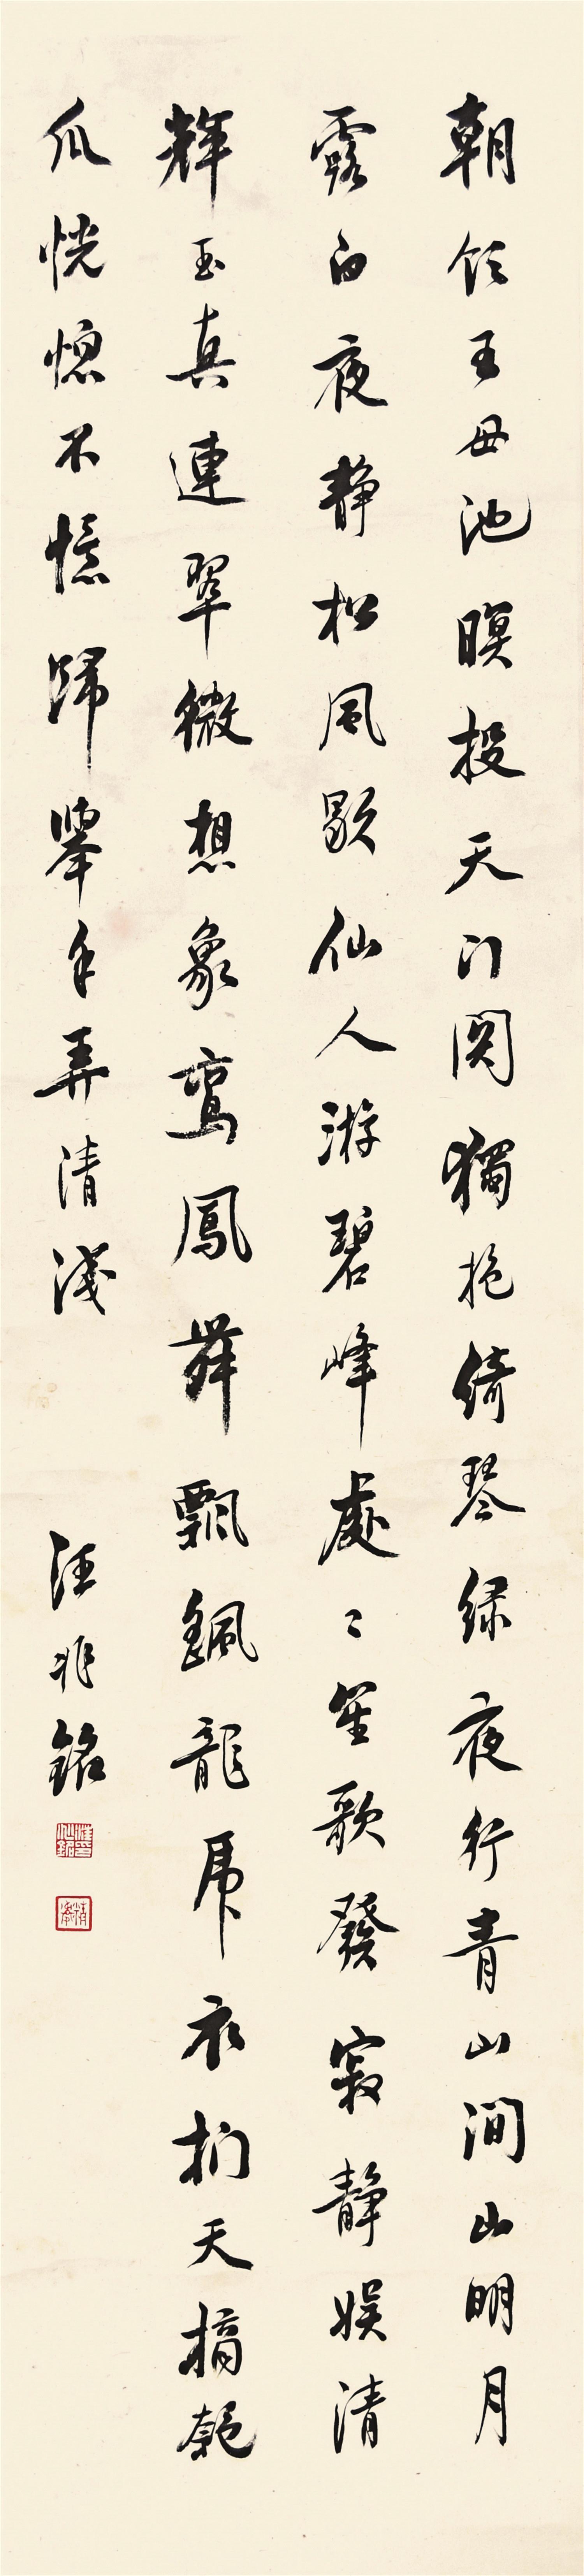 朝飲王母池暝投天門関獨抱綺琴緑夜行青山澗山明月
露白夜静松風歇仙人游碧峰處〻笙歌發寂静娱清
輝玉真連翠微想象鸞鳳舞飄飖龍虎衣捫天摘匏
瓜恍惚不憶歸舉手弄清淺
汪兆銘